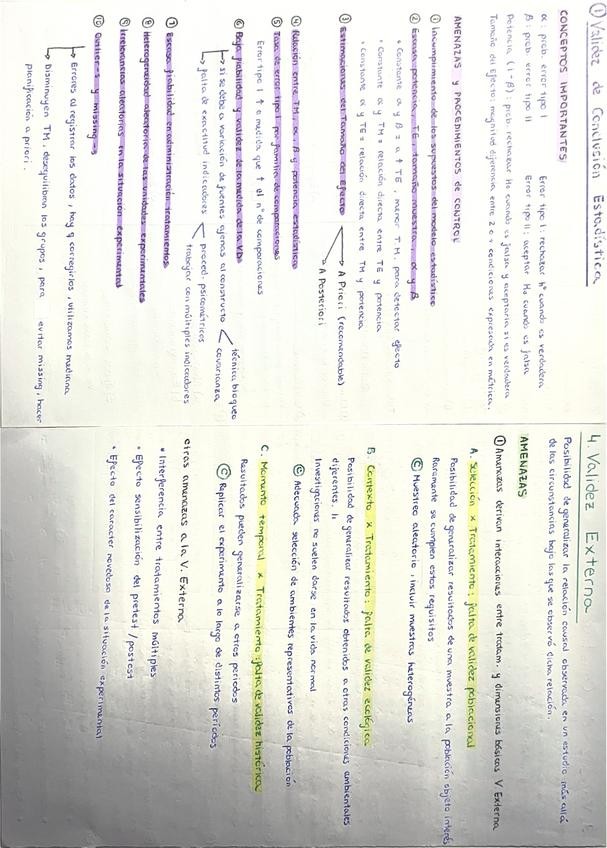 ① Validez de Conclusión Estadística
CONCEPTOS IMPORTANTES
α: prob. error tipo I
Error tipo I: rechazar Hº cuando es verdadera
β: prob. error tipo II
Error tipo II: aceptar Ho cuando es falsa
Potencia (1-β): prob. rechazar Ho cuando es falsa y aceptarla si es verdadera
Tamaño del Efecto: magnitud diferencia entre 2 o + condiciones expresada en métrica.
AMENAZAS Y PROCEDIMIENTOS DE CONTROL
① Incumplimiento de los supuestos del modelo estadístico
② Escasa potencia, TE, tamaño muestra, α y β
• Constante α y β = a ↑ TE, menor T.M. para detectar efecto
• Constante α y TM = relación directa entre TE y potencia
• Constante α y TE = relación directa entre TM y potencia
③ Estimaciones del Tamaño del Efecto
A Priori (recomendable)
A Posteriori
④ Relación entre TM, α, β y potencia estadística
⑤ Tasa de error tipo I por familia de comparaciones
Error tipo I ↑ a medida que ↑ el nº de comparaciones
⑥ Baja fiabilidad y validez de la medida de la VD
si se debe a variación de fuentes ajenas al constructo
técnica bloqueo
covarianza
falta de exactitud indicadores
proced. psicométricos
trabajar con múltiples indicadores
⑦ Escasa fiabilidad en administración tratamientos
⑧ Heterogeneidad aleatoria de las unidades experimentales
⑨ Irrelevancias aleatorias en la situación experimental
⑩ Outlier-s y missing-s
Errores al registrar los datos, hay q corregirlos, utilizamos mediana
Disminuyen TM, desequilibrio los grupos, para evitar missing, hacer
planificación a priori.
4. Validez Externa
Posibilidad de generalizar la relación causal observada en un estudio más allá
de las circunstancias bajo las que se observó dicha relación.
AMENAZAS
① Amenazas derivan interacciones entre tratam. y dimensiones básicas V. Externa
A. Selección x Tratamiento: falta de validez poblacional
Posibilidad de generalizar resultados de una muestra a la población objeto interés
Raramente se cumplen estos requisitos
Ⓒ Muestreo aleatorio, incluir muestras heterogéneas
B. Contexto x Tratamiento: falta de validez ecológica
Posibilidad de generalizar resultados obtenidos a otras condiciones ambientales
diferentes.
Investigaciones no suelen darse en la vida normal
Ⓒ Adecuada selección de ambientes representativos de la población
C. Momento temporal x Tratamiento: falta de validez histórica
Resultados pueden generalizarse a otros períodos
Ⓒ Replicar el experimento a lo largo de distintos períodos
Otras amenazas a la V. Externa
• Interferencia entre tratamientos múltiples
• Efecto sensibilización del pretest / postest
• Efecto del caracter novedoso de la situación experimental